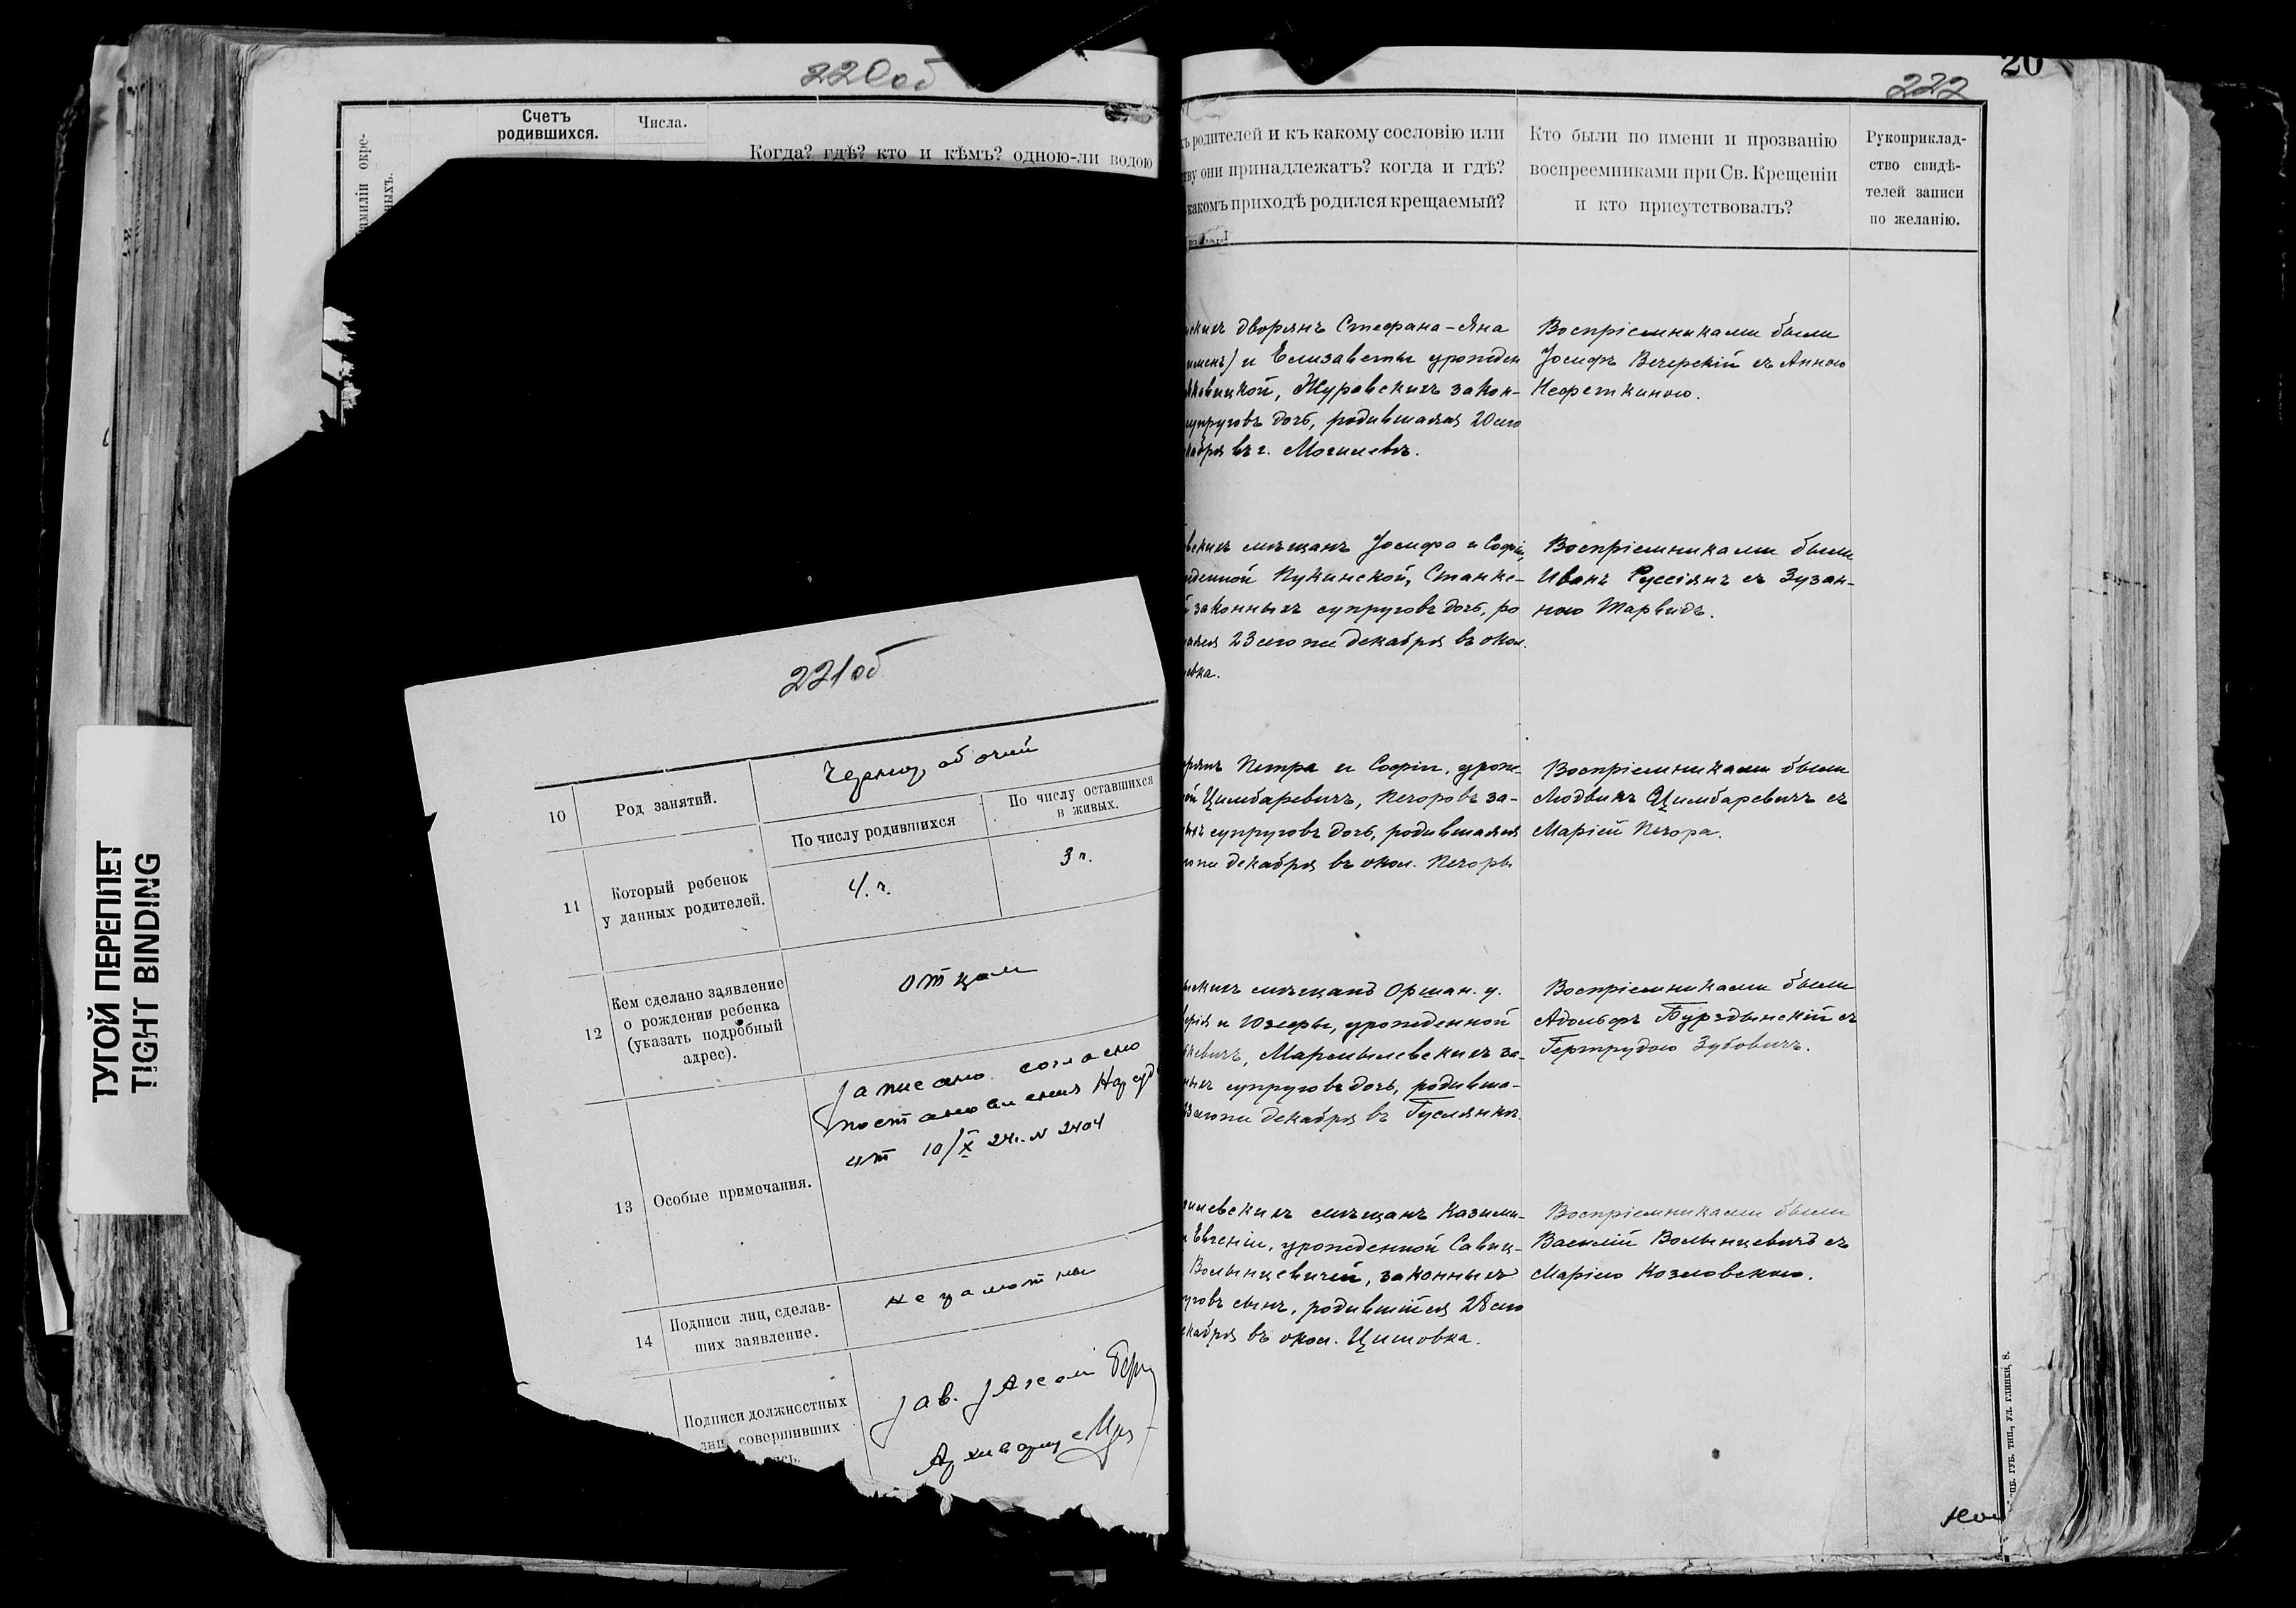 220об
Счетъ
родившихся.
Числа.
Когда? гдѣ? кто и кѣмъ? одною-ли водою
ТУГОЙ ПЕРЕПЛЕТ
TIGHT BINDING
221об
10
Род занятий.
Чернорабочий
11
Который ребенок
у данных родителей.
По числу родившихся
По числу оставшихся
в живых.
4.
3
12
Кем сделано заявление
о рождении ребенка
(указать подробный
адрес).
отцом
13
Особые примечания.
Записано согласно
постановления
от 10/X 24г. N 2404
14
Подписи лиц, сделав-
ших заявление.
неграмотны
Подписи должностных
лиц совершивших
Зав.
20
222
родителей и къ какому сословію или
они принадлежатъ? когда и гдѣ?
какомъ приходѣ родился крещаемый?
Кто были по имени и прозванію
воспреемниками при Св. Крещеніи
и кто присутствовалъ?
Рукоприклад-
ство свидѣ-
телей записи
по желанію.
дворянъ Стефана-Яна
и Елизаветы урожден
Журавскихъ закон-
дочь, родившаяся 20 сего
въ г. Могилевѣ.
Воспріемниками были
Іосифъ Вечерскій съ Анною
Нефеткиною.
мѣщанъ Іосифа и Софіи,
Пукинской, Станке-
законныхъ супруговъ дочь, ро
23 сего же декабря въ окол.
Воспріемниками были
Иванъ Руссіянъ съ Зузан-
ною Тарвидъ.
Петра и Софіи, урож-
Цимбаревичъ, Печоровъ за-
супруговъ дочь, родившаяся
декабря въ окол. Печоры
Воспріемниками были
Людвикъ Цимбаревичъ съ
Маріей Печора.
мѣщанъ Оршан. у.
и Юзефы, урожденной
за-
супруговъ дочь, родивша-
декабря въ Гуслянкѣ.
Воспріемниками были
Адольфъ Бурздынскій съ
Гертрудою Зубовичъ.
мѣщанъ Казими-
Евгеніи, урожденной Савиц-
Волынцевичей, законныхъ
сынъ, родившійся 28 сего
въ окол. Цитовка.
Воспріемниками были
Василій Волынцевичъ съ
Маріею Козловскою.
ГУБ. ТИП., УЛ. ГЛИНКИ, 8.